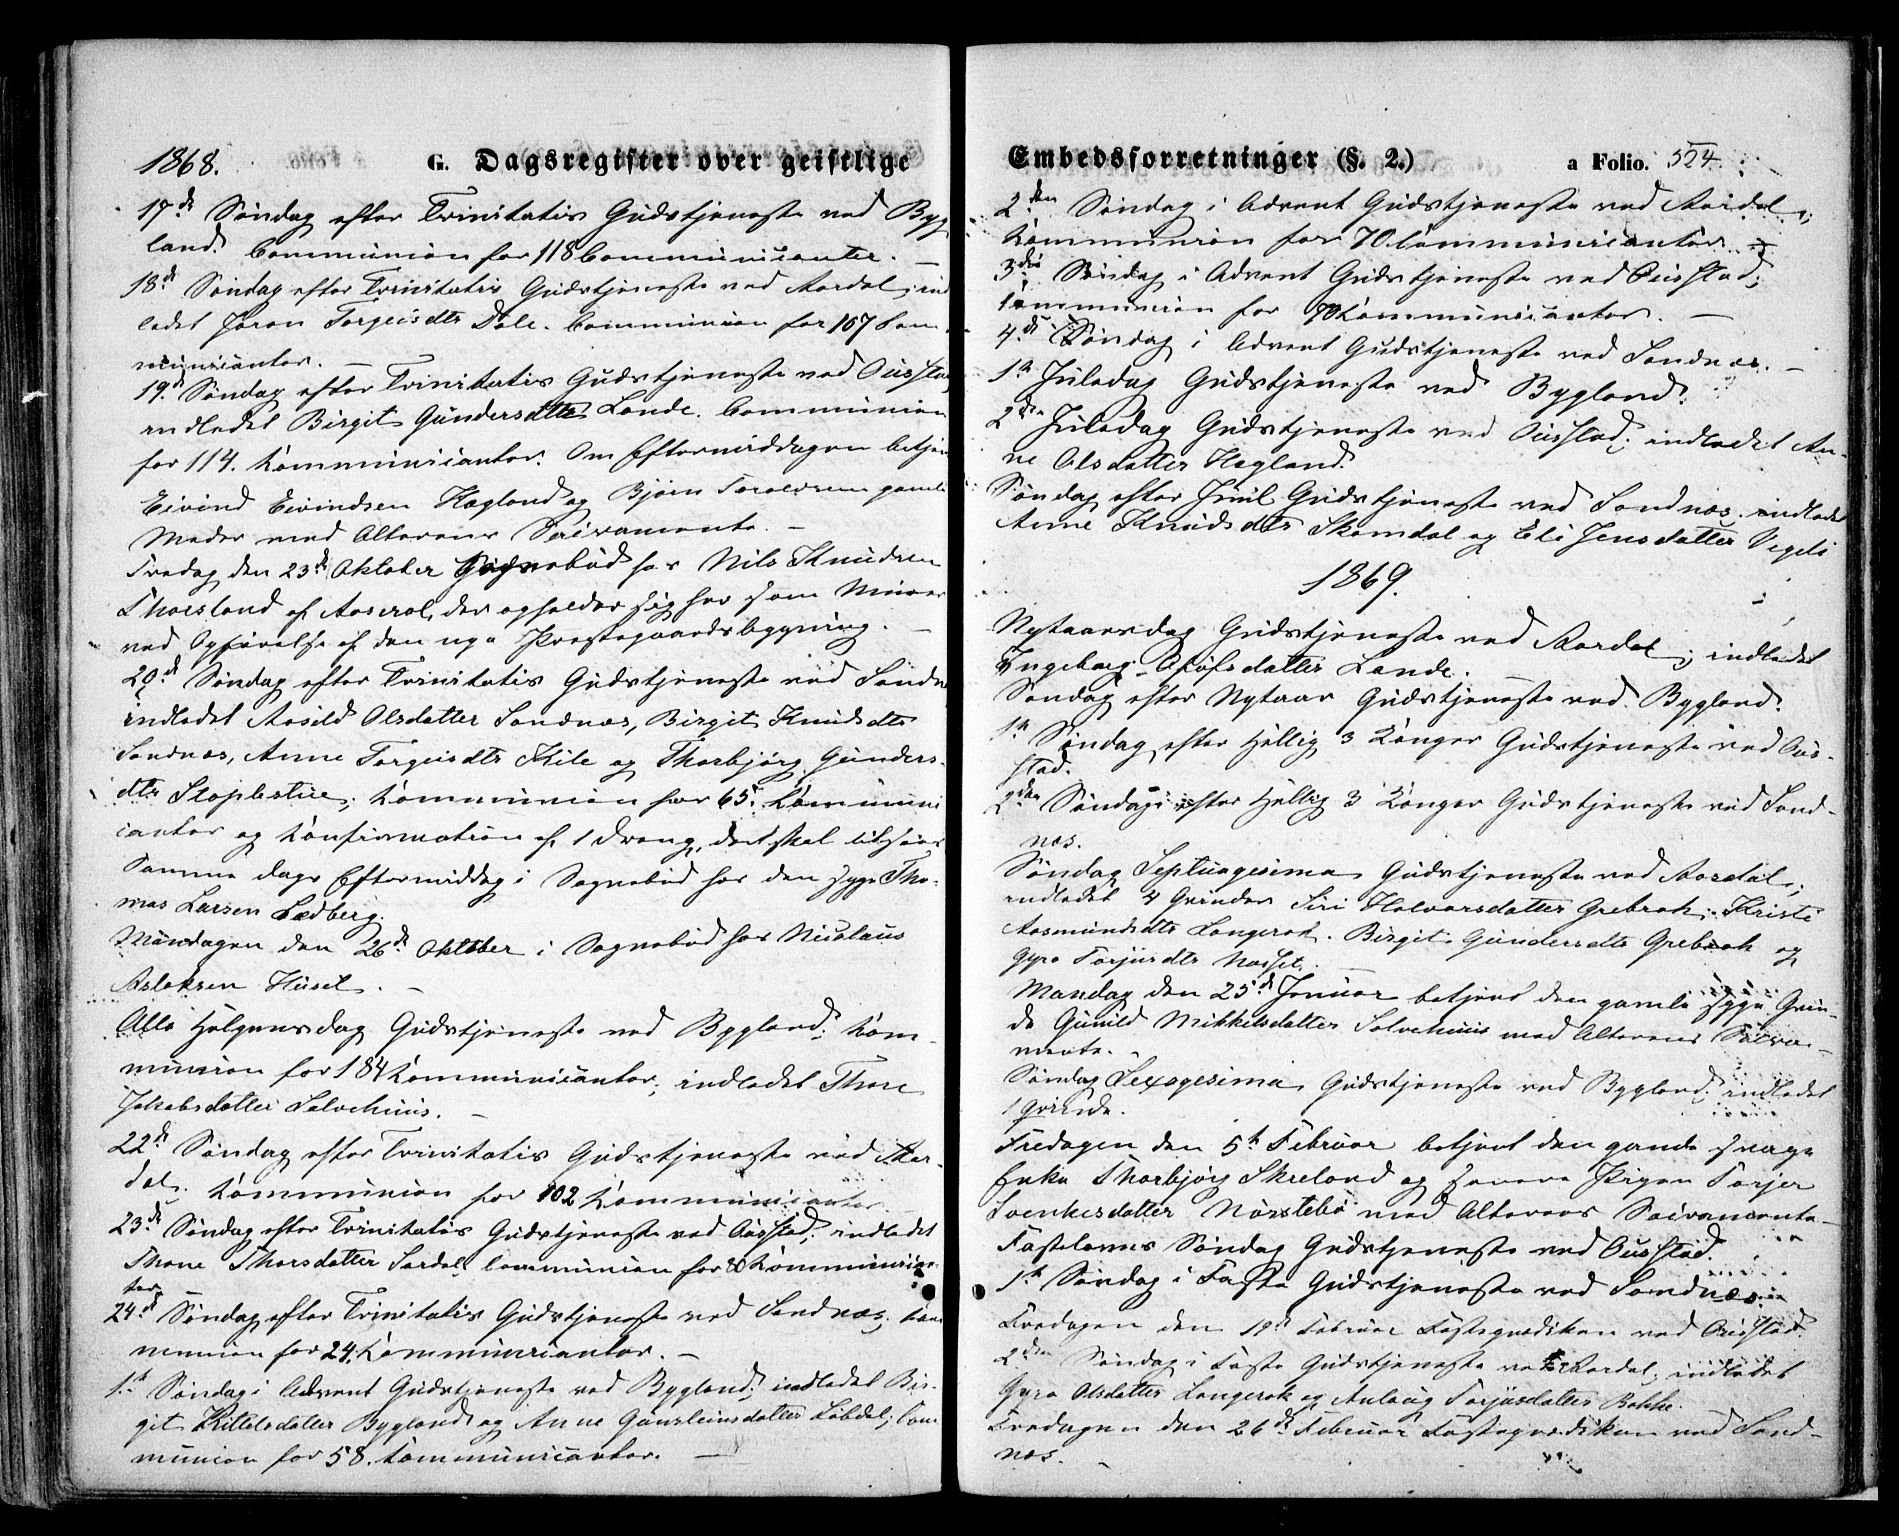 1868.
G. Dagsregister over geistlige
17de Søndag efter Trinitatis Gudstjeneste ved Byg
land. Communion for 118 Communicanter. —
18de Søndag efter Trinitatis Gudstjeneste ved Aardal; ind
ledet Joron Torgeisdtr Dale. Communion for 107 Com
municanter. —
19de Søndag efter Trinitatis Gudstjeneste ved Ousstad
indledet Birgit Gundersdatter Lande. Communion
for 114. Kommunicanter. Om Eftermiddagen betjen
Eivind Eivindsen Hagland og Bjørn gamle
Moder med Alterens Sacramente. —
Fredag den 23de Oktober Sognebud hos Nils Knudsen
af Aaseral, der opholder sig her som Murer
ved Opførelse af den nye Præstegaardsbygning. —
20de Søndag efter Trinitatis Gudstjeneste ved Sandne
indledet Aasild Olsdatter Sandnæs, Birgit Knudsdtr
Sandnæs, Anne Torgeisdtr Kile og Thorbjørg Gunders-
dtr Stoplestue; Kommunion for 65. Kommuni
canter og Konfirmation af 1 Dreng, det skal tilføies
Samme dags Eftermiddag i Sognebud hos den syge Tho-
mas Larsen Sædberg.
Mandagen den 26de Oktober i Sognebud hos Nicolaus
Aslaksen Husel. —
Alle Helgensdag Gudstjeneste ved Bygland; Kom-
munion for 184 Kommunicanter; indledet Thore
Jakobsdatter Solvehuus. —
22de Søndag efter Trinitatis Gudstjeneste ved Aar-
dal. Kommunion for 102 Kommunicanter.
23de Søndag efter Trinitatis Gudstjeneste ved Ousstad; indledet
Thone Thorsdatter Communion for 80 Kommunican-
ter.
24de Søndag efter Trinitatis Gudstjeneste ved Sandnæs; Kom
munion for 24. Kommunicanter. —
1ste Søndag i Advent Gudstjeneste ved Bygland; indledet Bir-
git Kittelsdatter Bygland og Anne Gunsteinsdatter Lobdal; Com
munion for 58. Kommunicanter. —
Embedsforretninger (§. 2.)
a Folio. 524.
2den Søndag i Advent Gudstjeneste ved Aardal;
Kommunion for 70 Communicanter. —
3die Søndag i Advent Gudstjeneste ved Ousstad;
Communion for 70 Kommunicanter. —
4de Søndag i Advent Gudstjeneste ved Sandnæs. —
1ste Juledag Gudstjeneste ved Bygland.
2den Juledag Gudstjeneste ved Ousstad; indledet An-
ne Olsdatter Hagland.
Søndag efter Juul Gudstjeneste ved Sandnæs. indledet
Anne Knudsdtr Skomdal og Eli Jensdatter Vegeli
1869.
Nytaarsdag Gudstjeneste ved Aardal; indledet
Ingeborg Olafsdatter Lande. —
Søndag efter Nytaar Gudstjeneste ved Bygland.
1ste Søndag efter Hellig 3 Konger Gudstjeneste ved Ous-
stad.
2den Søndag efter Hellig 3 Konger Gudstjeneste ved Sand-
næs.
Søndag Septuagesima Gudstjeneste ved Aardal;
indledet 4 Qvinder Siri Halvorsdatter Grebrok, Kristi
Aasmundsdtr Langerak. Birgit Gundersdtr Grebrok og
Gyro Torjusdtr Næsset. —
Mandag den 25de Januar betjent den gamle syge Qvin-
de Gunild Mikkelsdatter Solvehuus med Alterens Sacra-
mente. —
Søndag Sexagesima Gudstjeneste ved Bygland; indledet
1 Qvinde.
Fredagen den 5te Februar betjent den gamle svage
Enke Thorbjørg Skreland og Pigen Torjer
Svenkesdatter Nørstebø med Alterens Sacramente. —
Fastelavns Søndag Gudstjeneste ved Ousstad.
1ste Søndag i Faste Gudstjeneste ved Sandnæs.
Fredagen den 19de Februar Fasteprædiken ved Ousstad.
2den Søndag i Faste Gudstjeneste ved Aardal; indledet
Gyro Olsdatter Langerak og Aulaug Torjusdatter Bakke.
Fredagen den 26de Februar Fasteprædiken ved Sand-
næs. —